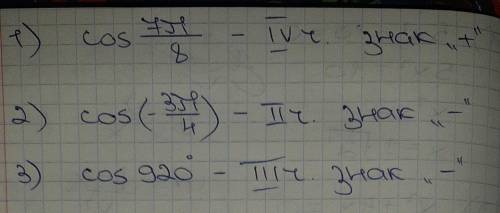 1) cos 7π/8 – IV ч. знак „+“
2) cos(-3π/4) – II ч. знак „-“
3) cos 920° – III ч. знак „-“